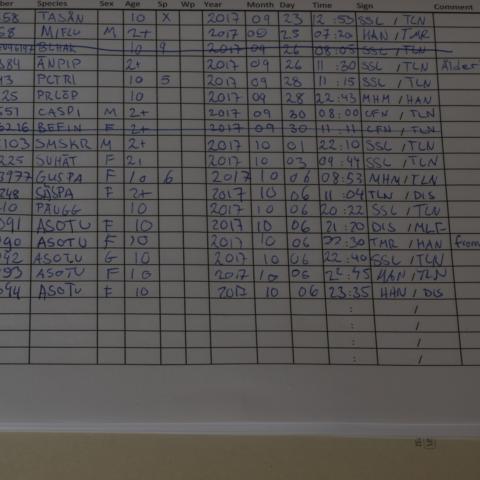 ber Species Sex Age Sp Wp Year Month Day Time Sign Comment
58 TASAN 10 X 2017 09 23 12:50 SSL/TLN
58 MIFLU M 2+ 2017 09 25 07:20 HAN/TMR
BLHAK 10 9 2017 09 26 08:05 SSL/TLN
384 ÄNPIP 2+ 2017 09 26 11:30 SSL/TLN Ålder
43 PCTRI 10 5 2017 09 28 11:15 SSL/TLN
25 PRLEP 10 2017 09 28 22:43 MHM/HAN
551 CASPI M 2+ 2017 09 30 08:00 CFN/TLN
6216 BEFIN F 2+ 2017 09 30 11:11 CFN/TLN
2103 SMSKR M 2+ 2017 10 01 22:10 SSL/TLN
225 SUHÄT F 2+ 2017 10 03 09:44 SSL/TLN
3977 GUSPA F 10 6 2017 10 06 08:53 MHM/TLN
248 SÄSPA F 2+ 2017 10 06 11:04 TLN/DIS
10 PÄUGG 10 2017 10 06 20:22 SSL/TLN
091 ASOTU F 10 2017 10 06 21:20 DIS/MLF
090 ASOTU F 10 2017 10 06 22:30 TMR/HAN from
092 ASOTU G 10 2017 10 06 22:40 SSL/TLN
093 ASOTU F 10 2017 10 06 22:45 HAN/TLN
094 ASOTU F 10 2017 10 06 23:35 HAN/DIS
: /
: /
: /
: /